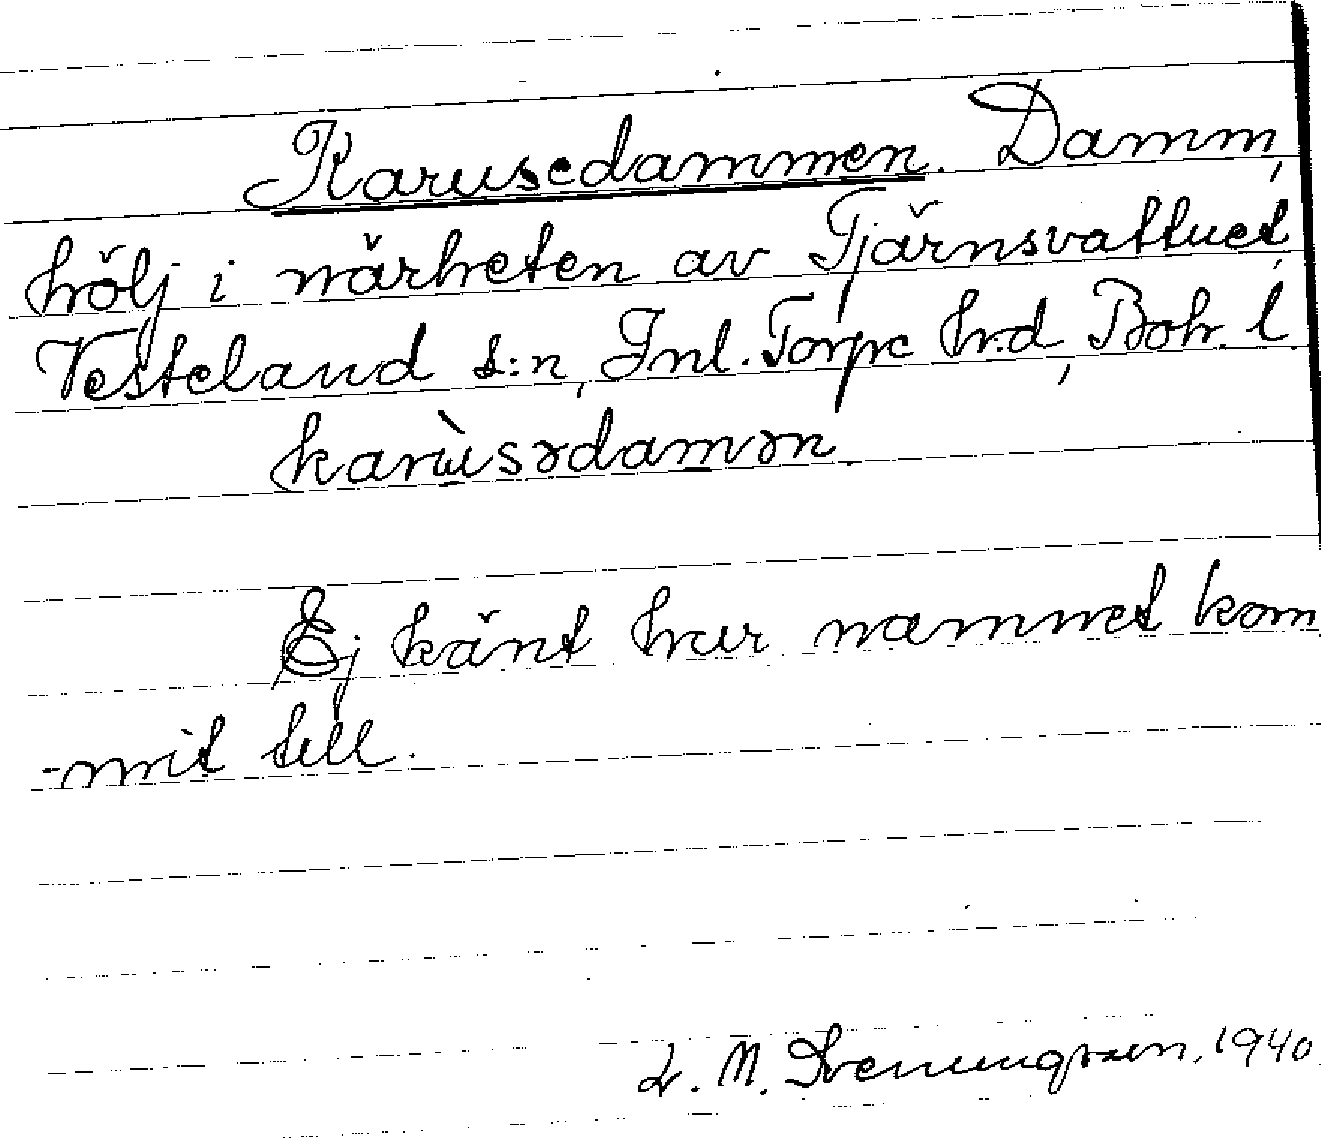 Karusedammen. Damm,
hölj i närheten av Tjärnsvattnet,
Vesteland s:n, Inl. Torpe hrd, Boh. l.
karùsədamən.
Ej känt hur namnet kom
-mit till.
L. M. Svenungsson, 1940